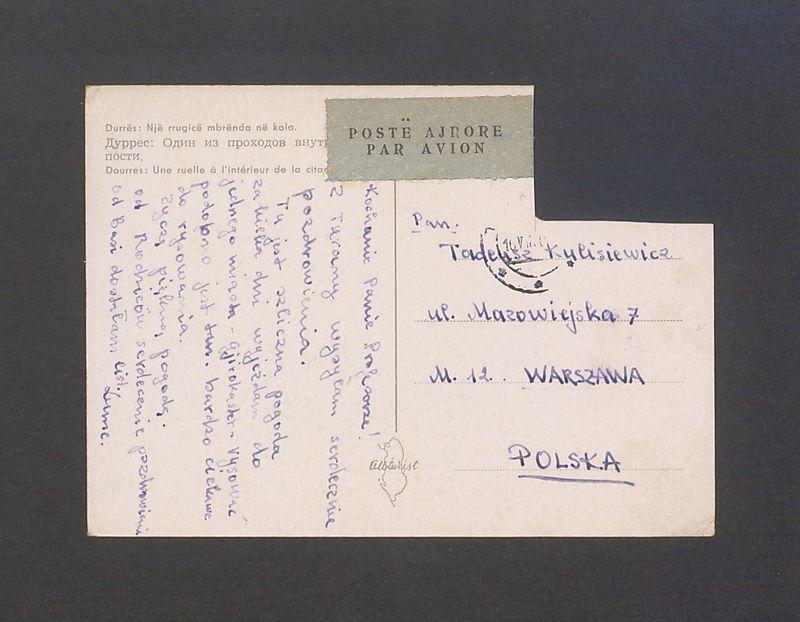 Durrës: Një rrugicë mbrënda në kala.
Дуррес: Один из проходов внутр
пости.
Dourres: Une ruelle à l'intérieur de la citad
POSTË AJRORE
PAR AVION
Kochanie Panie Profesorze!
Z Tirany wysyłam serdecznie
pozdrowienia.
Tu jest szliczna pogoda
za kielka dni wyjeżdam do
jednego miasta - Gjirokaster - rysować
podobno jest tam bardzo ciekawe
do rysowania.
Życzą piękną pogodą.
od Rodziców serdecenie pozdrowieni
od Basi dostałam list.
Lume.
Pan.
Tadeusz Kulisiewicz
ul. Mazowiejska 7
M. 12. WARSZAWA
POLSKA
Albturist